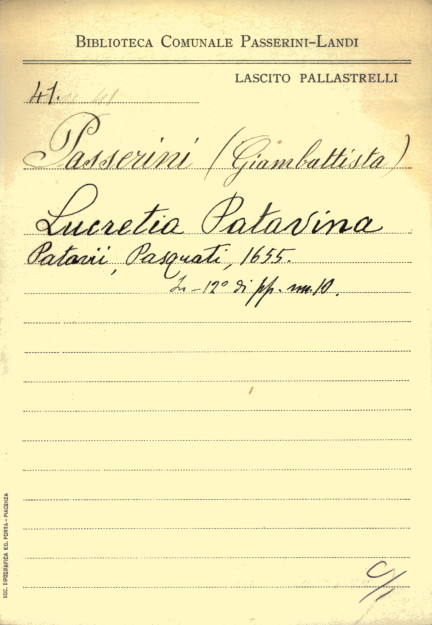 BIBLIOTECA COMUNALE PASSERINI-LANDI
LASCITO PALLASTRELLI
41.
Passerini (Giambattista)
Lucretia Patavina
Patavii, Pasquati, 1655.
In-12° di pp. nn. 10.
SOC. TIPOGRAFICA ED. PORTA - PIACENZA